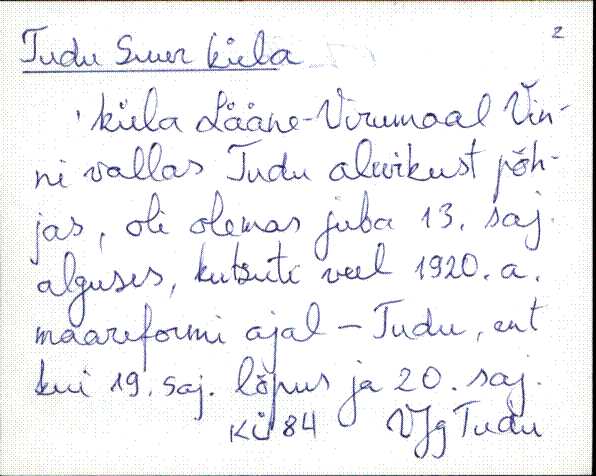 2
Tudu Suur küla
küla Lääne-Virumaal Vin-
ni vallas Tudu alevikust põh-
jas, oli olemas juba 13. saj.
alguses, kutsuti veel 1920. a.
maareformi ajal – Tudu, ent
kui 19. saj. lõpus ja 20. saj.
KÜ 84 VJg Tudu